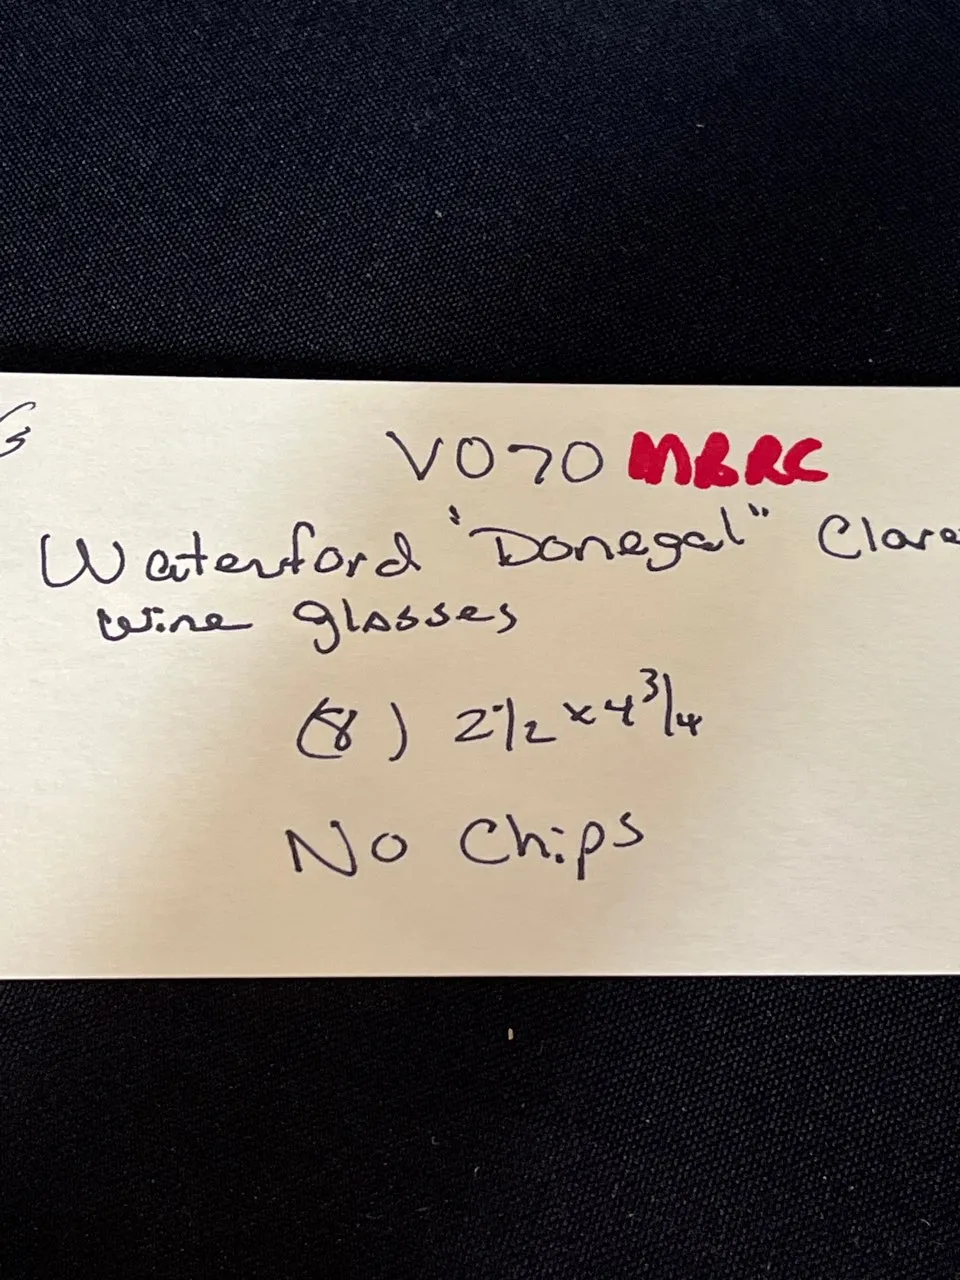 V070 MBRC
Waterford "Donegal" Clare
wine glasses
(8) 2 1/2 x 4 3/4
No Chips